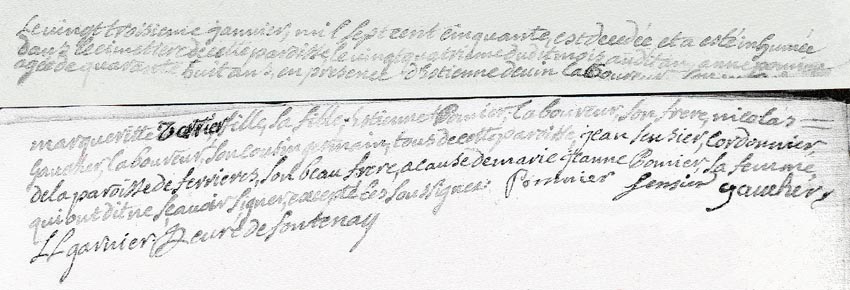 Le vingt troisieme janvier, mil sept cent cinquante, est decedée et a esté inhumée
dans le cimettere de cette paroisse le vingt quatrieme dudit mois audit an, anne
agée de quarante huit ans, en presence d'Etienne laboureur
margueritte fille, sa fille, Estienne Pomier, laboureur, son frere, nicolas
Gaucher, laboureur, son cousin germain, tous de cette paroisse, jean sensier, cordonnier
de la paroisse de ferrieres, son beau frere, a cause de marie jeanne Pomier, sa femme,
qui ont dit ne sçavoir signer, excepté les soussignez: Pommier Sensier gaucher,
LL garnier P. curé de fontenay